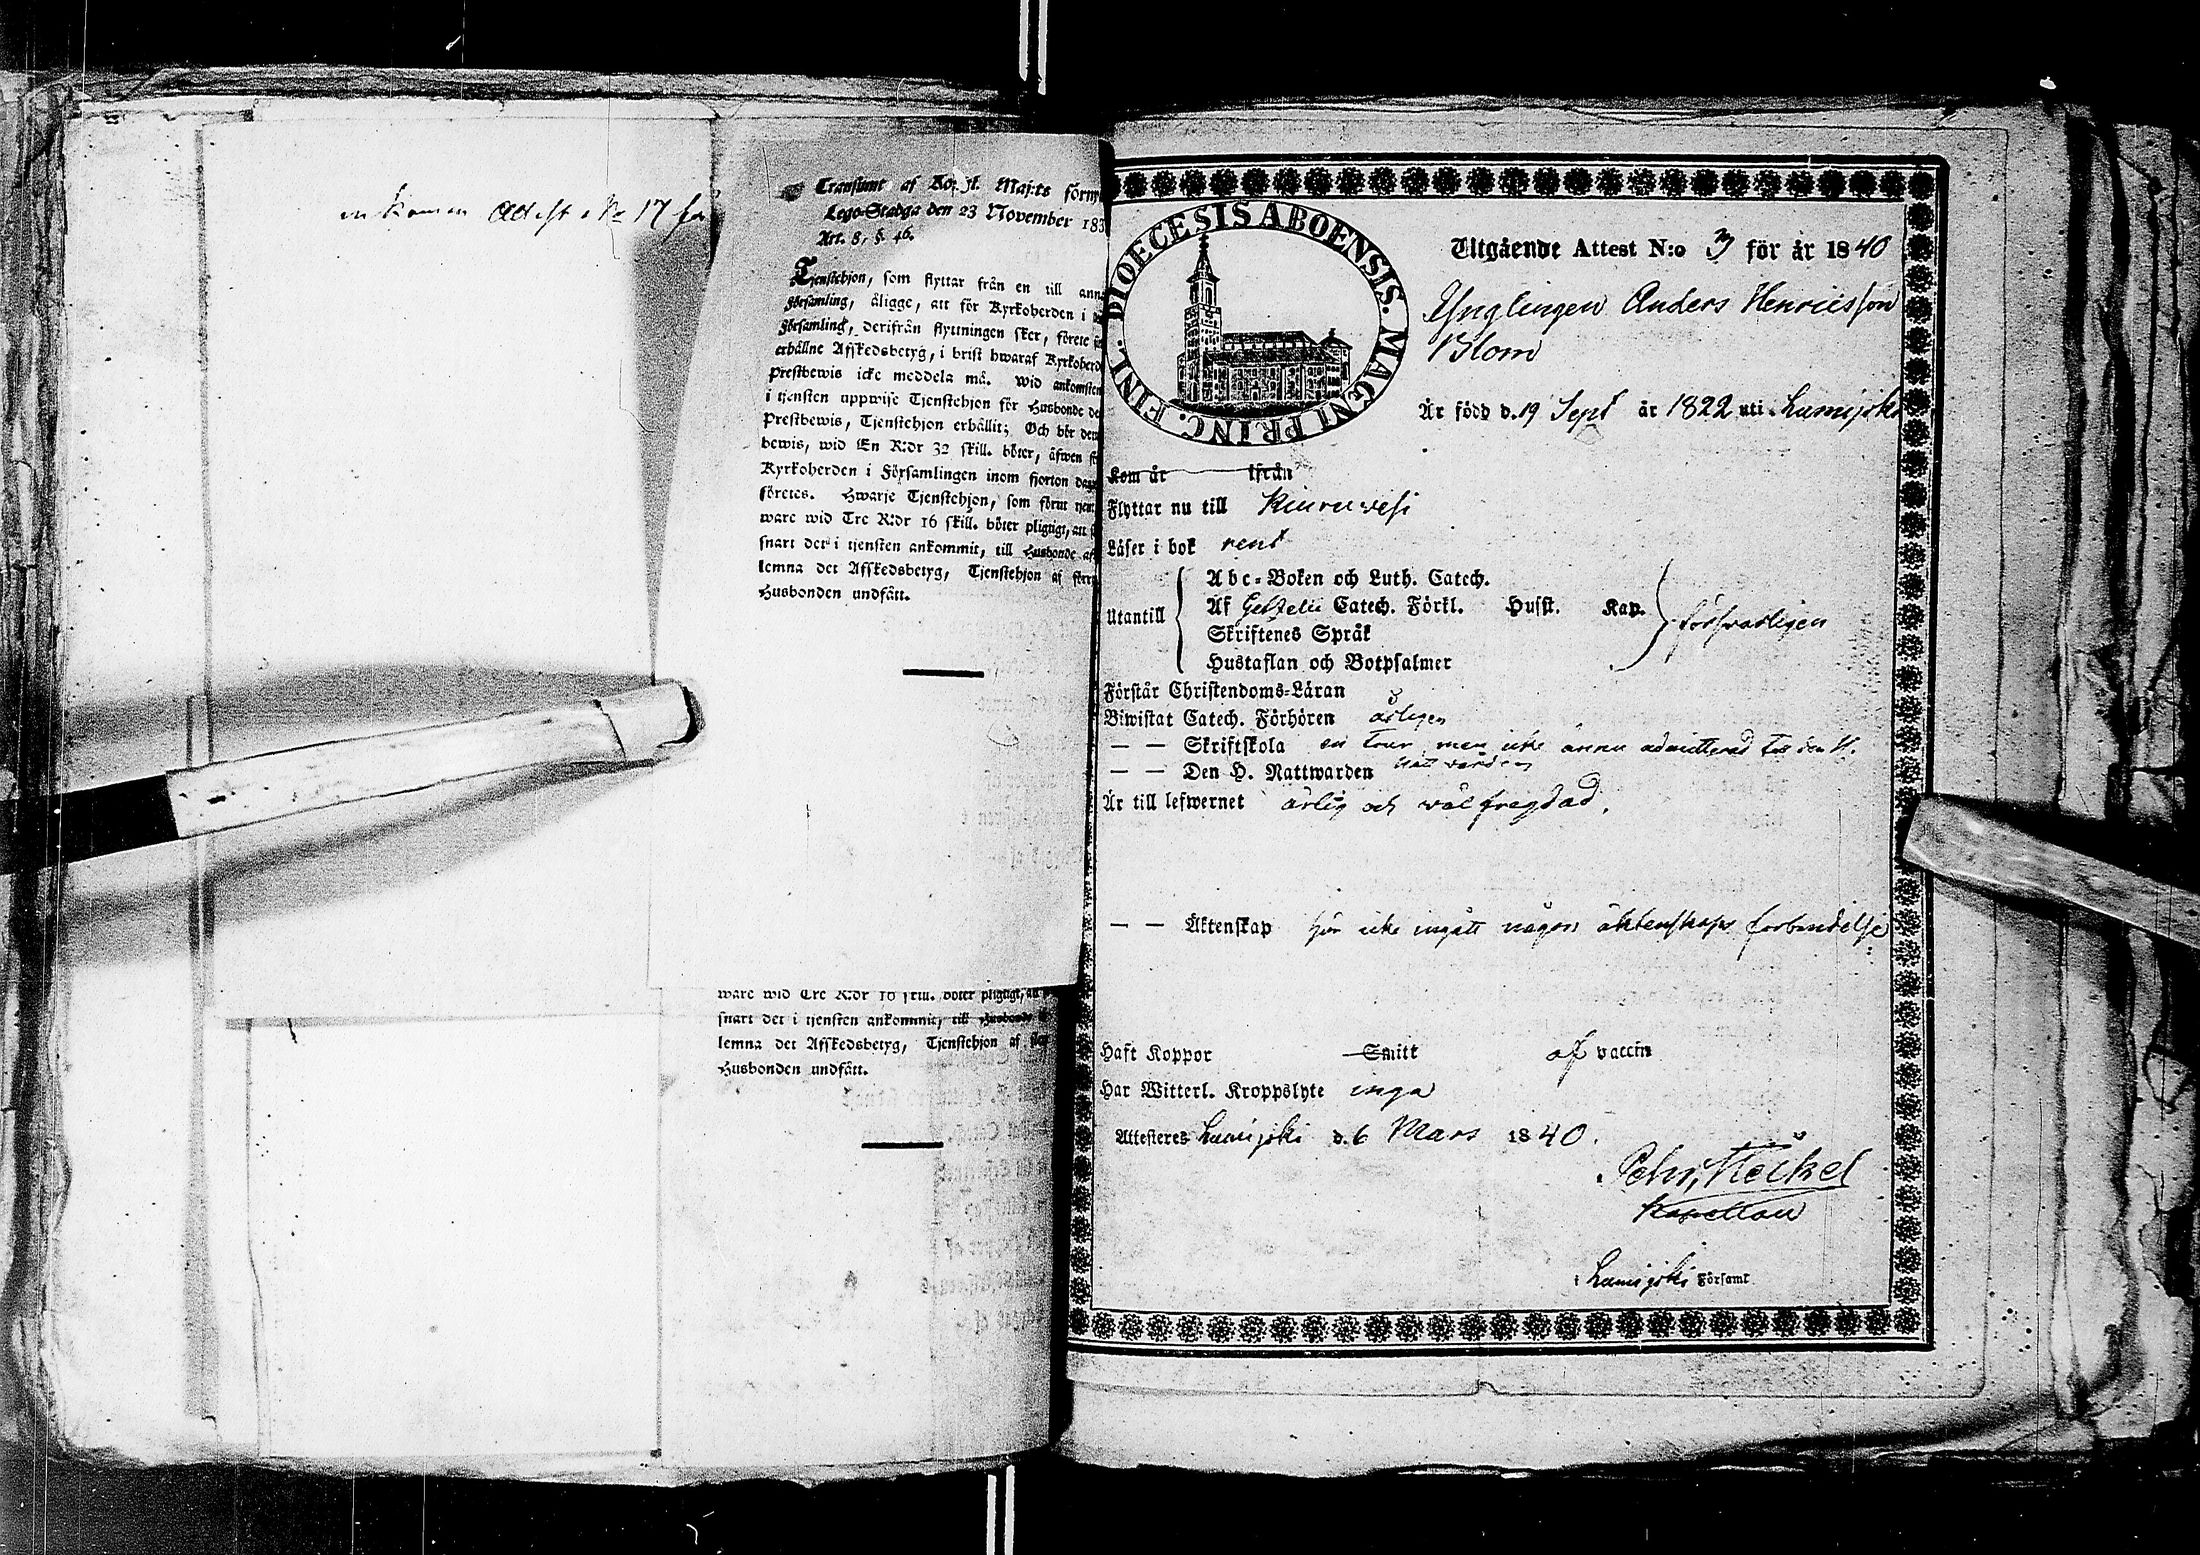 inkomen Attest No 17 för
Transumt af Kongl. Maj:ts förny
Lego-Stadga den 23 November 183
Art. 8, §. 46.
Tjenstehjon, som flyttar från en till ann
Församling, åligge, att för Kyrkoherden i
Församling, derifrån flyttningen sker, förete
erhållne Afskedsbetyg, i brist hwaraf Kyrkoherd
Prestbewis icke meddela må. Wid ankomsten
i tjensten uppwise Tjenstehjon för Husbonde de
Prestbewis, Tjenstehjon erhållit; Och bör den
bewis, wid En R:dr 32 skill. böter, äfwen
Kyrkoherden i Församlingen inom fjorton dag
företes. Hwarje Tjenstehjon, som förut tjen
ware wid Tre R:dr 16 skill. böter pligtigt, att
snart det i tjensten ankommit, till Husbonde af
lemna det Afskedsbetyg, Tjenstehjon af förr
Husbonden undfått.
ware wid Tre R:dr 16 skill. böter pligtigt, att
snart det i tjensten ankommit, till Husbonde
lemna det Afskedsbetyg, Tjenstehjon af
Husbonden undfått.
DIOECESIS ABOENSIS. MAGNI PRINC. FINL.
Utgående Attest N:o 3 för år 1840
Ynglingen Anders Henricsson
Blom
Är född d. 19 Sept år 1822 uti Lumijoki
Kom år ifrån
Flyttar nu till Kiuruvesi
Läser i bok rent
Utantill
Abc-Boken och Luth. Catech.
Af Gezelii Catech. Förkl. Husst. Kap.
Skriftenes Språk
Hustaflan och Botpsalmer
försvarligen
Förstår Christendoms-Läran
Biwistat Catech. Förhören årligen
— — Skriftskola en tour, men icke ännu admitterad till den H.
— — Den H. Nattwarden Nattvarden
Är till lefwernet ärlig och väl frejdad.
— — Äktenskap har icke ingått någon äktenskaps förbindelse
Haft Koppor Smitt af vaccin
Har Witterl. Kroppslyte inga
Attesteras Lumijoki d. 6 Mars 1840.
Pehr Heickel
Kapellan
i Lumijoki Församl